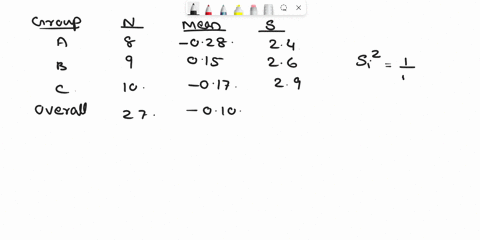 Group N Mean S
A 8 -0.28 2.4
B 9 0.15 2.6
C 10 -0.17 2.9
Overall 27 -0.10
Si² = 1